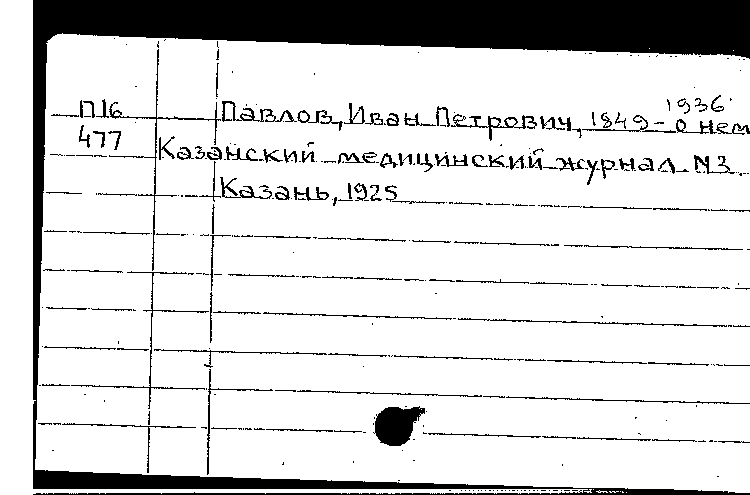 1936
П16 Павлов, Иван Петрович, 1849- о нем
477 Казанский медицинский журнал N3.
Казань, 1925